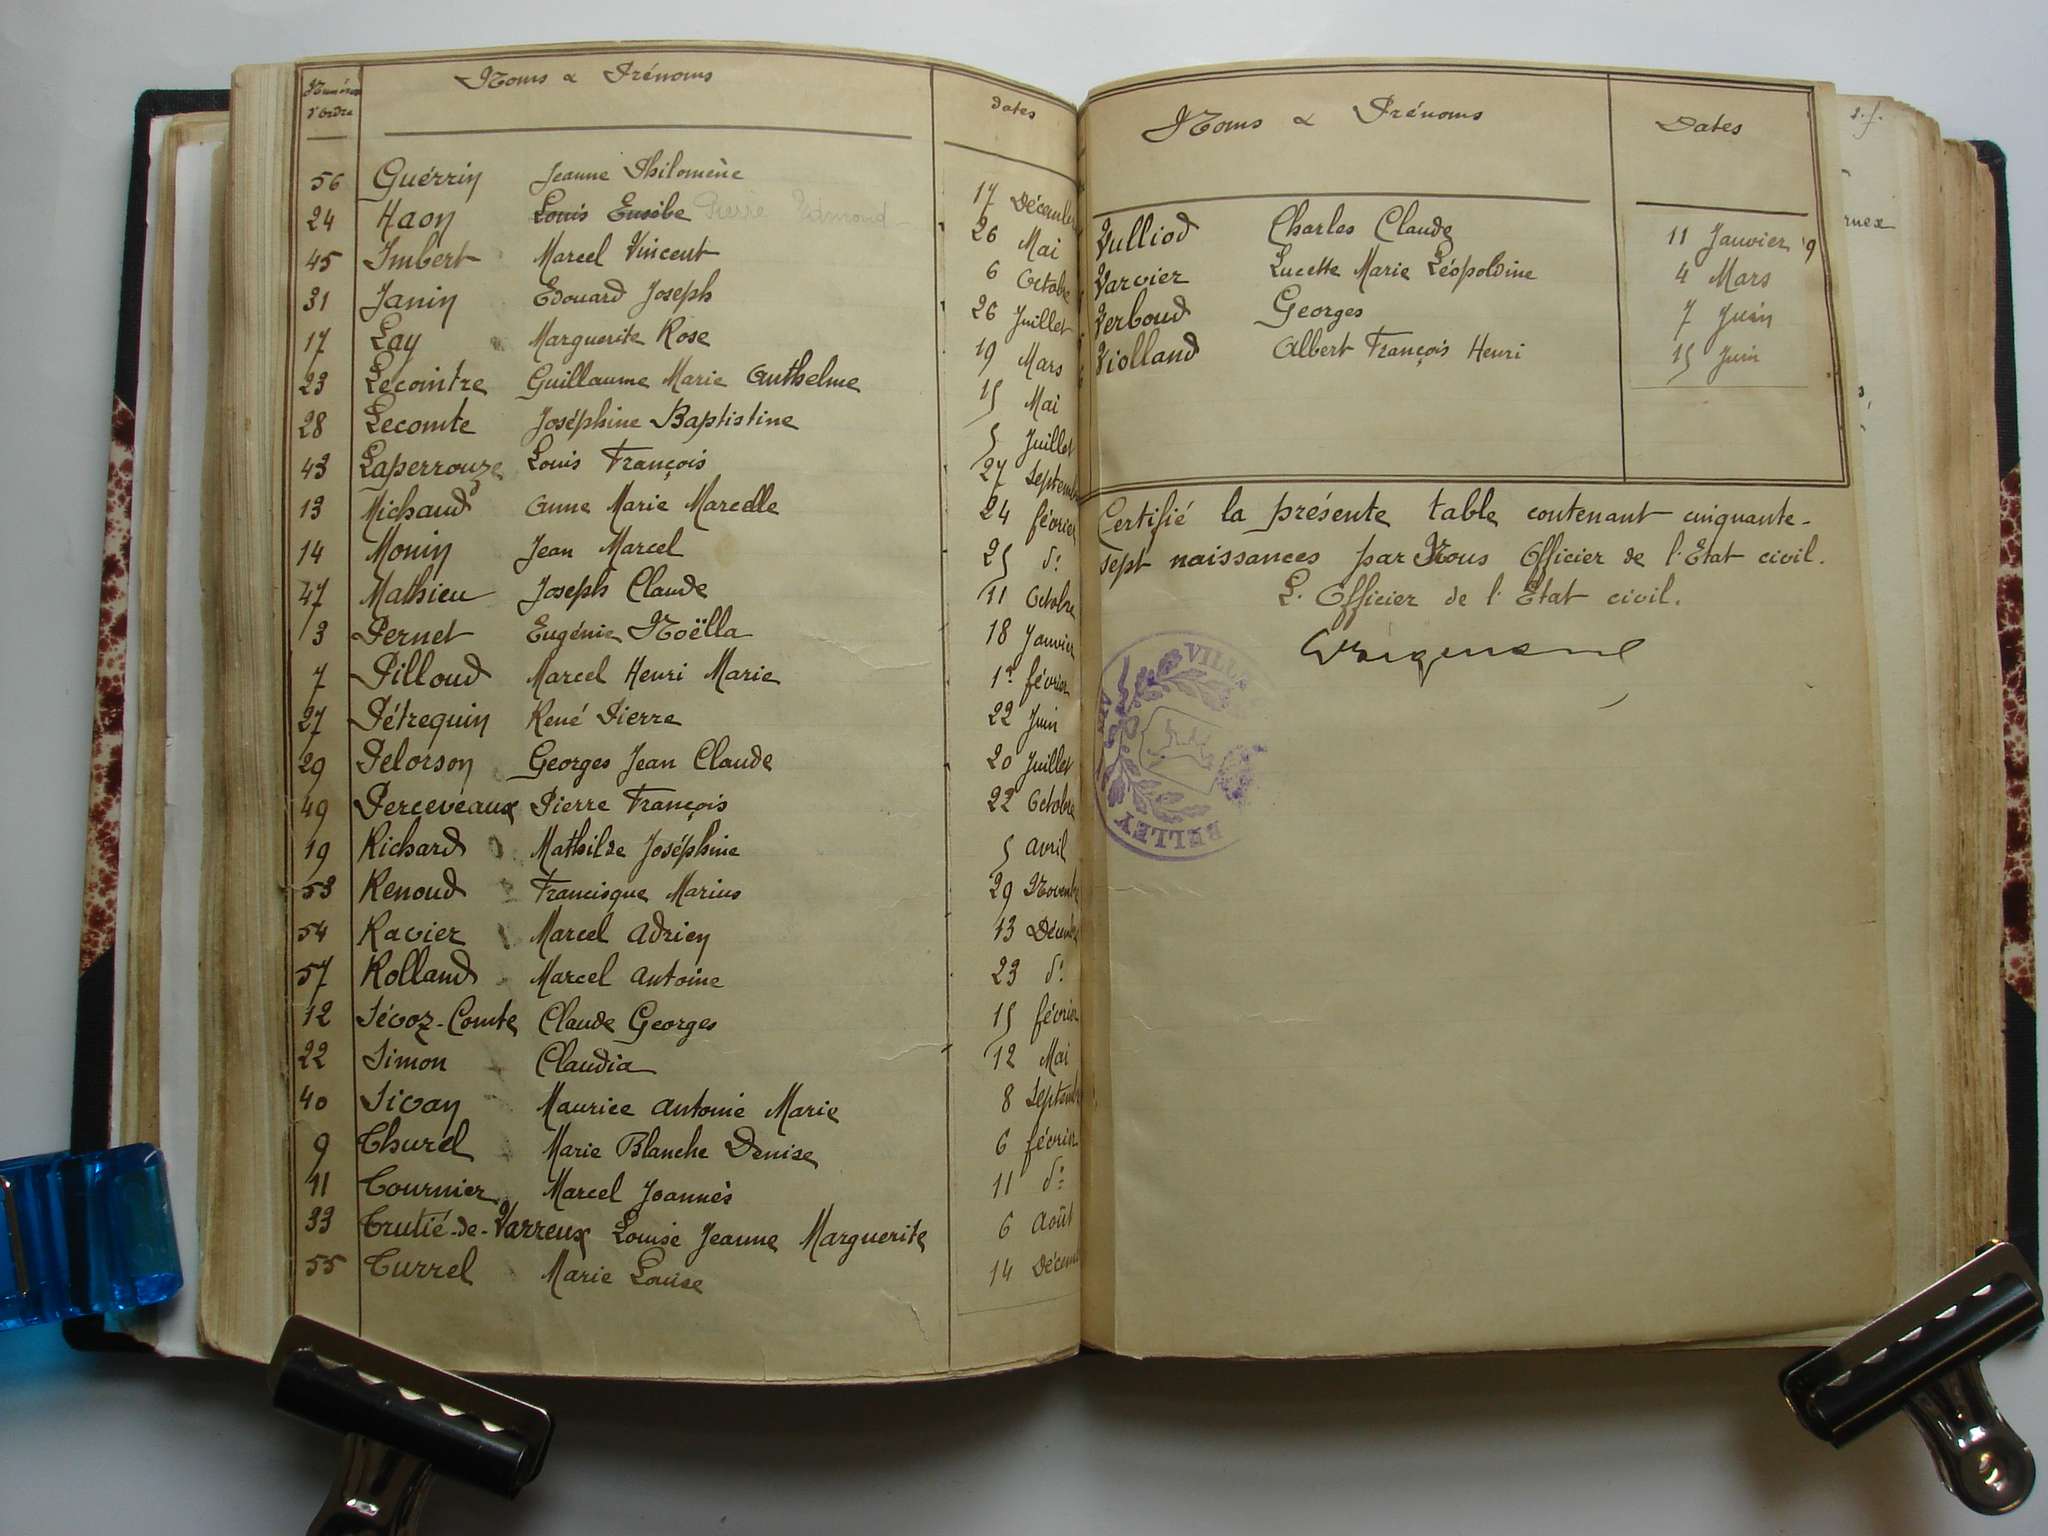 Numéros d'ordre Noms & Prénoms dates
56 Guérrin Jeanne Philomène 17 Décembre
24 Haon Louis Eusèbe Pierre 26 Mai
45 Imbert Marcel Vincent 6 Octobre
31 Janin Edouard Joseph 26 Juillet
17 Lay Marguerite Rose 19 Mars
23 Lecointre Guillaume Marie Anthelme 15 Mai
28 Lecomte Joséphine Baptistine 5 Juillet
43 Laperrouze Louis François 27 Septemb
13 Michaud Anne Marie Marcelle 24 février
14 Monin Jean Marcel 25 d°
47 Mathieu Joseph Claude 11 Octobre
3 Pernet Eugénie Noëlla 18 Janvier
7 Pilloud Marcel Henri Marie 1er février
27 Pétrequin René Pierre 22 Juin
29 Pelorson Georges Jean Claude 20 Juillet
49 Percevéaux Pierre François 22 Octobre
19 Richard Mathilde Joséphine 5 Avril
53 Renoud Francisque Marius 29 Novemb
54 Ravier Marcel Adrien 13 Décemb
57 Rolland Marcel Antoine 23 d°
12 Sévoz-Comte Claude Georges 15 février
22 Simon Claudia 12 Mai
40 Sivan Maurice Antoine Marie 8 Septemb
9 Thurel Marie Blanche Denise 6 février
11 Tournier Marcel Joannès 11 d°
33 Trutié-de-Varreux Louise Jeanne Marguerite 6 Août
55 Turrel Marie Louise 14 Décem
Noms & Prénoms Dates
Vulliod Charles Claude 11 Janvier 9
Varvier Lucette Marie Léopoldine 4 Mars
Verboud Georges 7 Juin
Violland Albert François Henri 15 Juin
Certifié la présente table contenant cinquante-
sept naissances par Nous Officier de l'Etat civil.
L'Officier de l'Etat civil.
VILLE
BELLEY